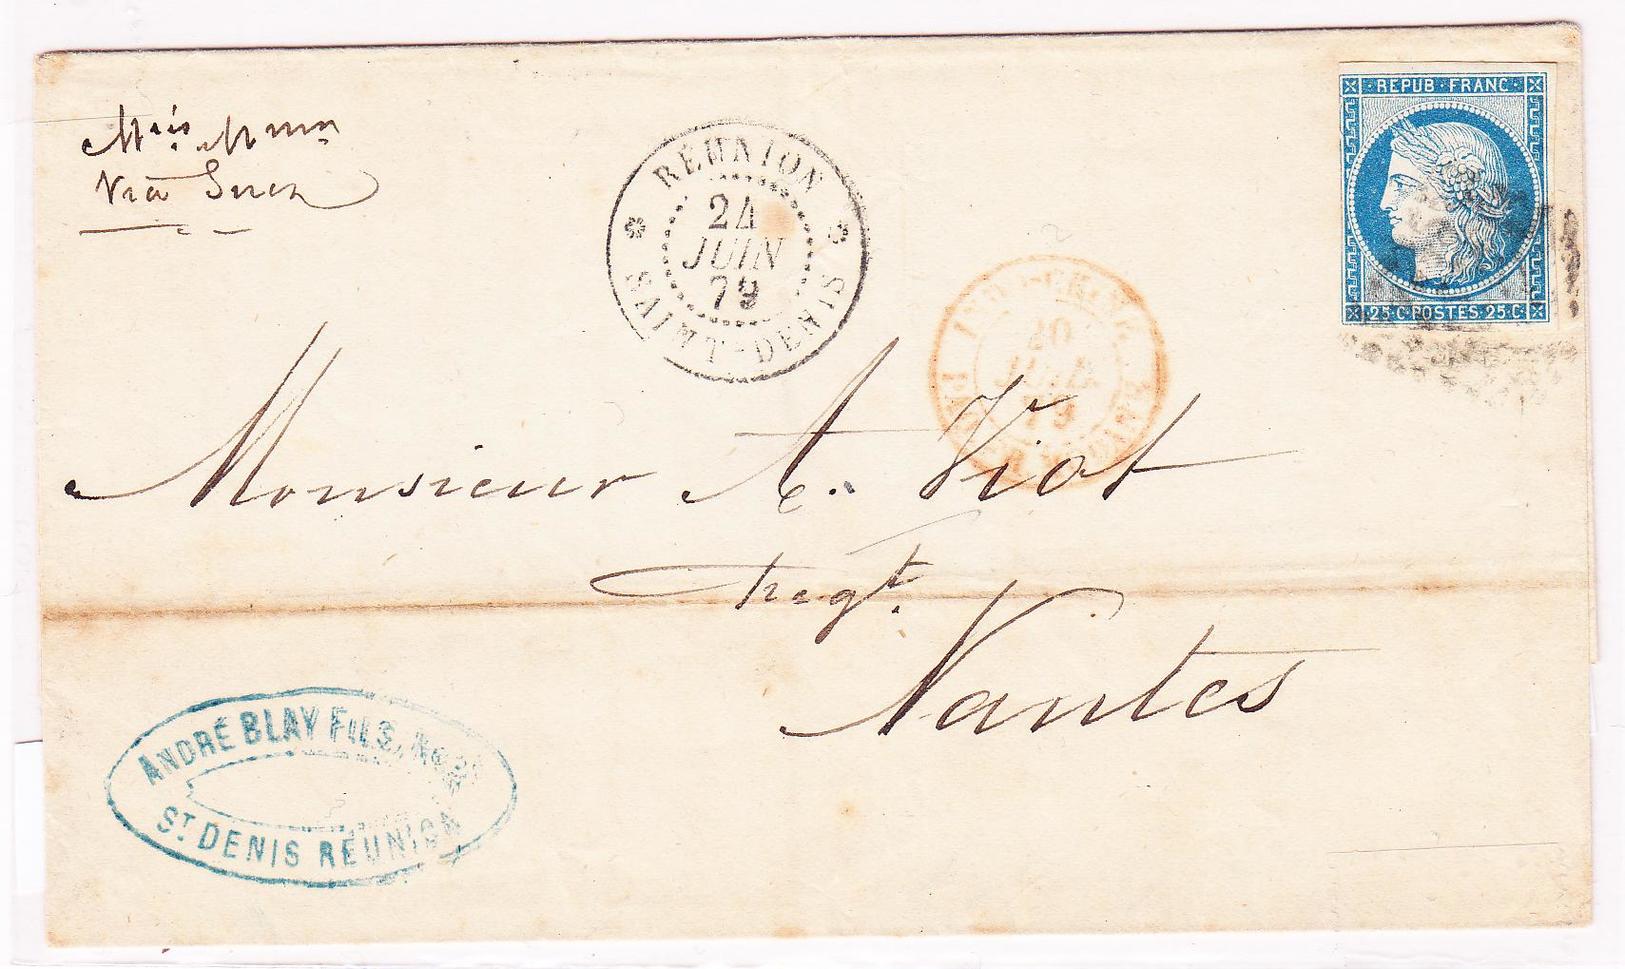 Via Suez
RÉUNION
24
JUIN
79
SAINT-DENIS
REPUB · FRANC
25·C·POSTES·25·C
JUIL
79
Monsieur A. Viot
Negt.
Nantes
ANDRÉ BLAY FILS,
ST. DENIS RÉUNION